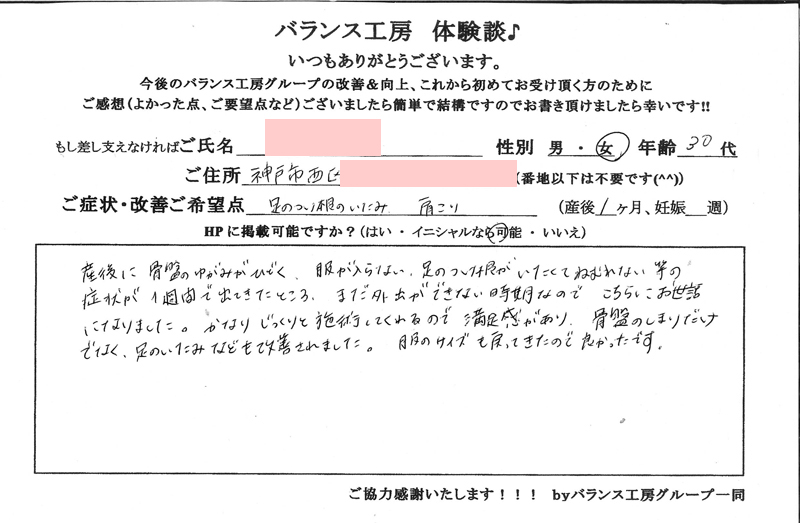 バランス工房 体験談♪
いつもありがとうございます。
今後のバランス工房グループの改善&向上、これから初めてお受け頂く方のために
ご感想(よかった点、ご要望点など)ございましたら簡単で結構ですのでお書き頂けましたら幸いです!!
もし差し支えなければご氏名 性別 男・女 年齢 30代
ご住所 神戸市西区 (番地以下は不要です(^^))
ご症状・改善ご希望点 足のつけ根のいたみ 肩こり (産後1ヶ月、妊娠 週)
HPに掲載可能ですか?(はい・イニシャルなら可能・いいえ)
産後に骨盤のゆがみがひどく、服が入らない、足のつけ根がいたくてねむれない等の
症状が1週間で出てきたところ、まだ外出ができない時期なので こちらにお世話
になりました。かなりじっくりと施術してくれるので満足感があり、骨盤のしまりだけ
でなく、足のいたみなども改善されました。服のサイズも戻ってきたので良かったです。
ご協力感謝いたします!!! byバランス工房グループ一同